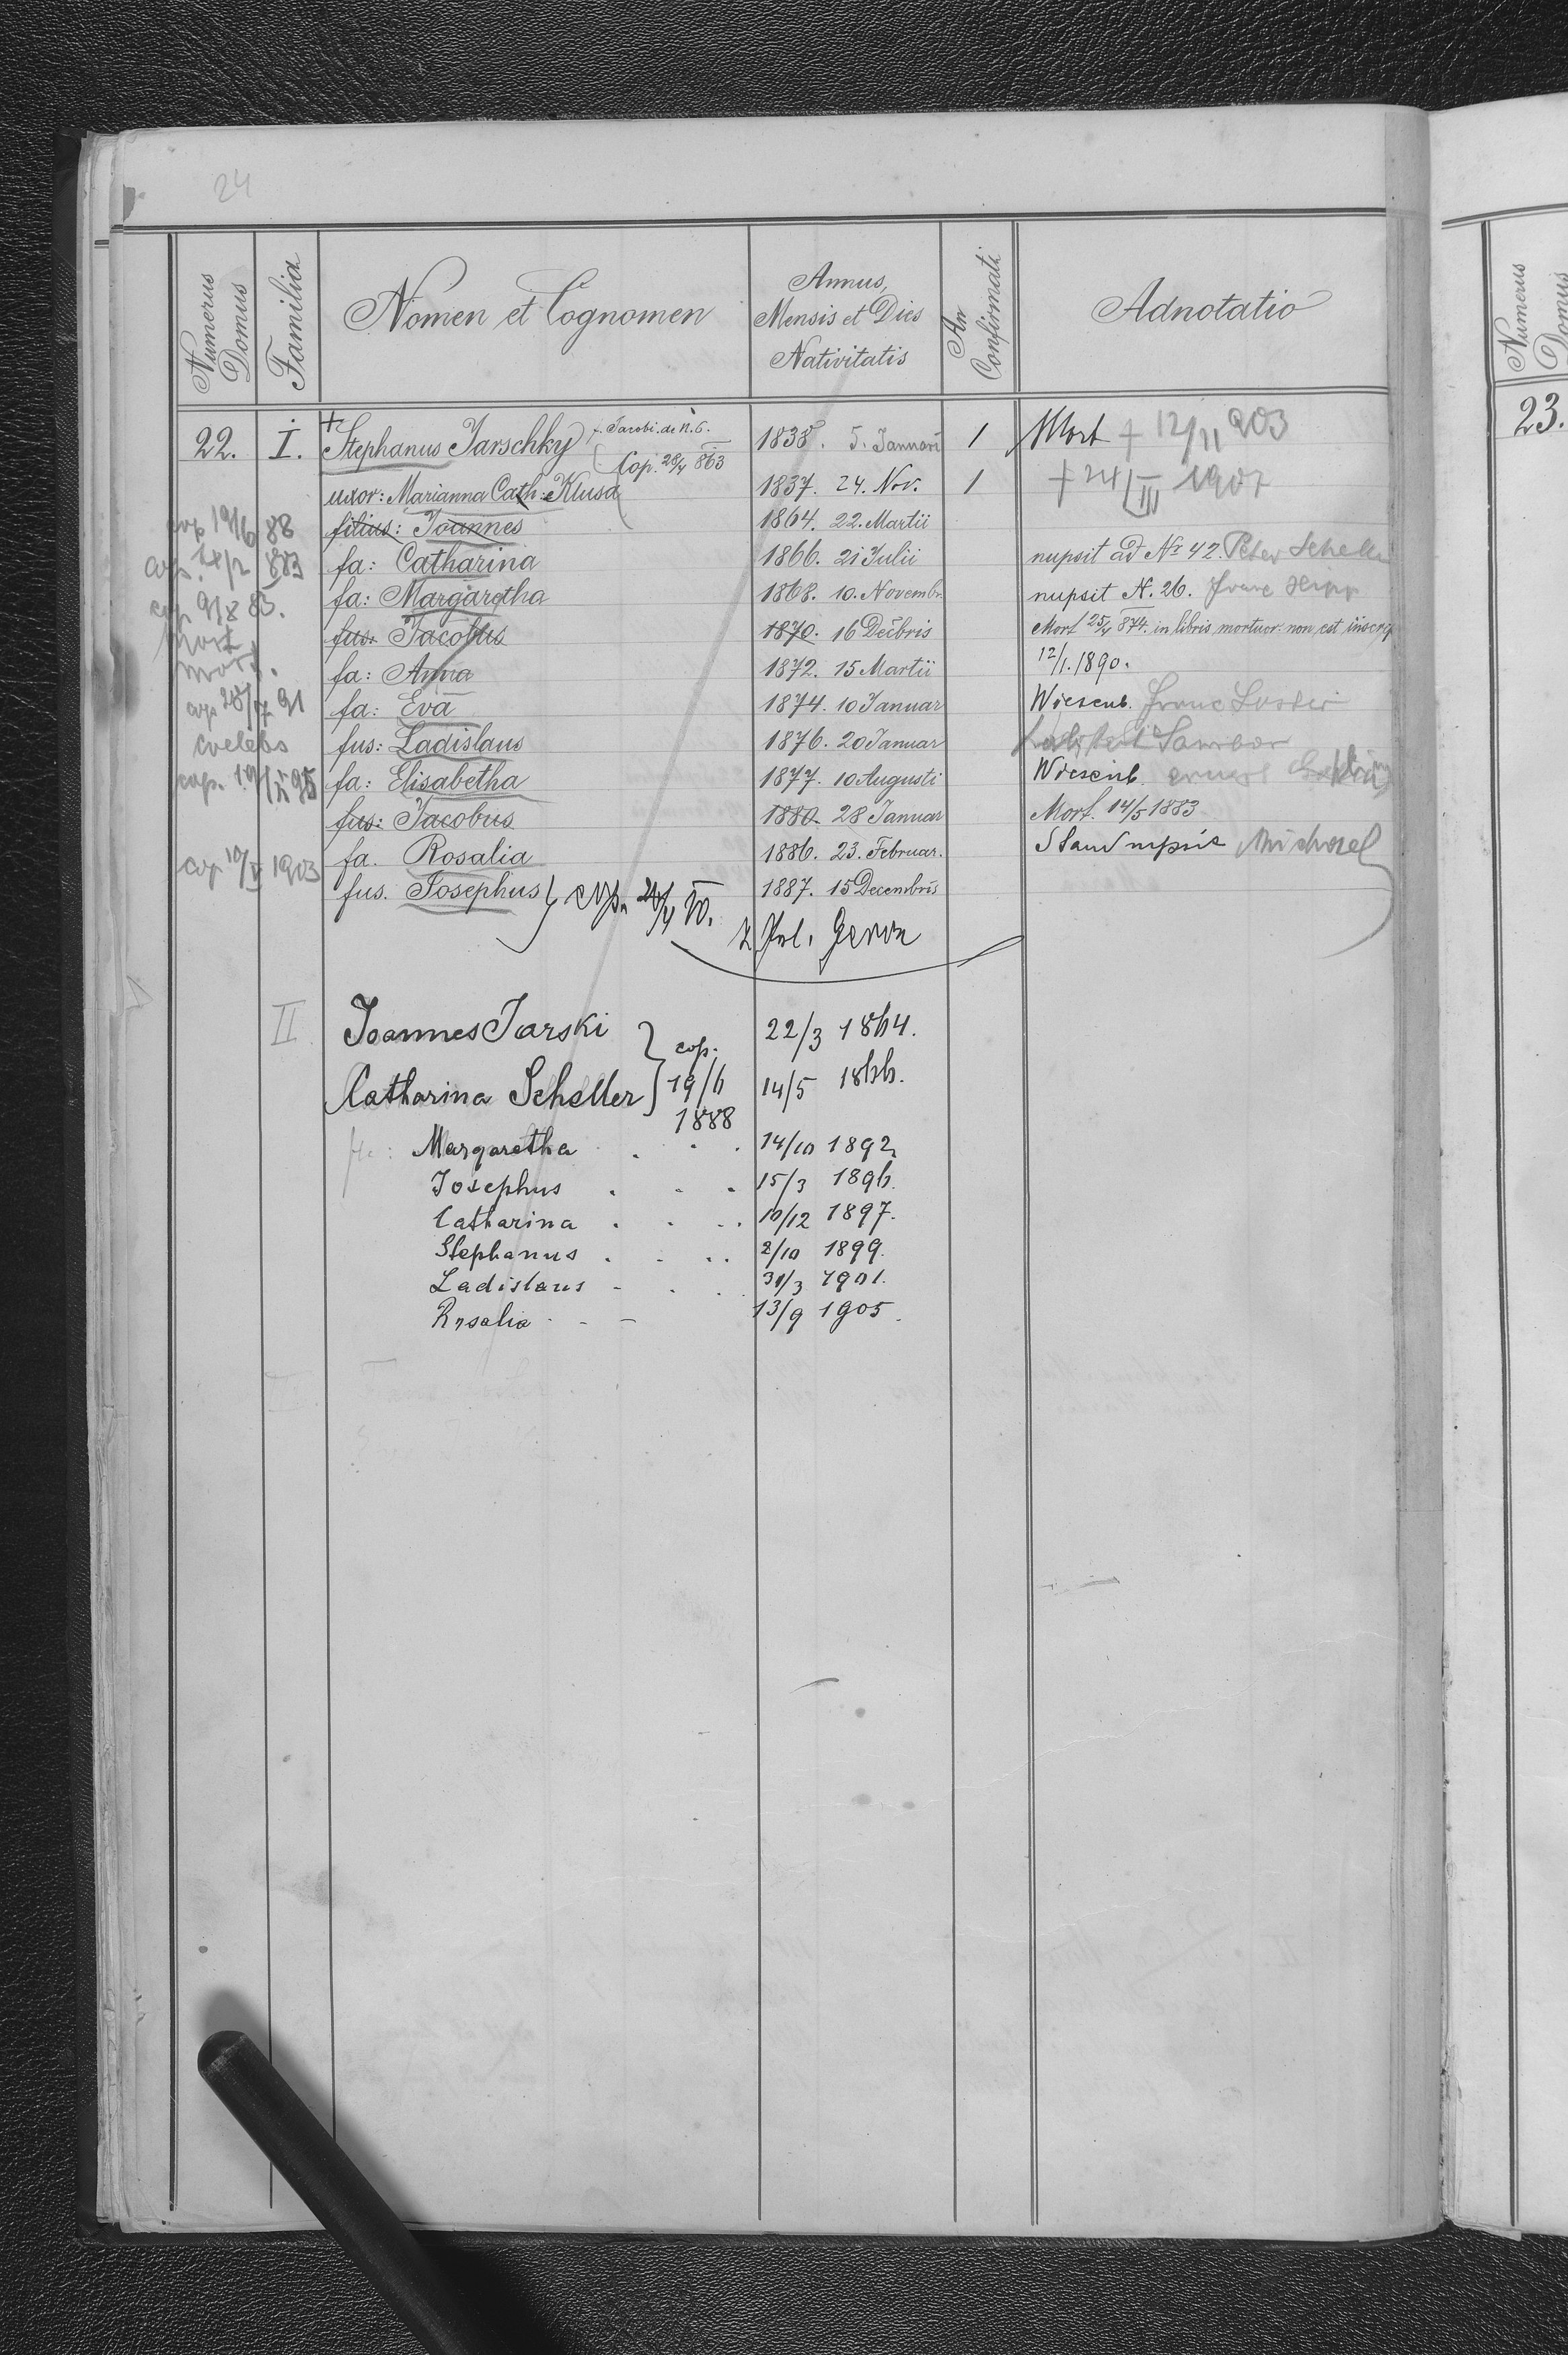 24
Numerus Domus Familia Nomen et Cognomen Annus, Mensis et Dies Nativitatis An Confirmati Adnotatio
22. I. Stephanus Jarschky f. Jacobi de N. 6. 1838. 5. Januari 1 Mort † 12/11 903
Cop. 28/4 863
uxor: Marianna Cath: Klusa 1837. 24. Nov. 1 † 24/III 1907
cop 19/6 88 filius: Joannes 1864. 22. Martii
883 fa: Catharina 1866. 21 Julii nupsit ad Nr 42. Peter Schell
83. fa: Margaretha 1868. 10. Novembr. nupsit N. 26. Franc
mort fus: Jacobus 1870. 16 Decbris Mort 25/4 874. in libris mortuor: non est inscrip
mort. fa: Anna 1872. 15 Martii 12/1. 1890.
91 fa: Eva 1874. 10 Januar Wiesenb. Franc
coelebs fus: Ladislaus 1876. 20 Januar
cop. 19/ 95 fa: Elisabetha 1877. 10 Augusti Wiesenb.
fus: Jacobus 1880. 28 Januar Mort. 14/5 1883
cop 10/V 1903 fa. Rosalia 1886. 23. Februar. Michael
fus. Josephus cop. 1887. 15 Decembris
II Joannes Jarski 22/3 1864.
cop. 19/6 1888
Catharina Scheller 14/5 1866.
Margaretha 14/10 1892
Josephus 15/3 1896.
Catharina 10/12 1897.
Stephanus 2/10 1899.
Ladislaus 31/3 1901.
Rosalia 13/9 1905.
Numerus Domus
23.